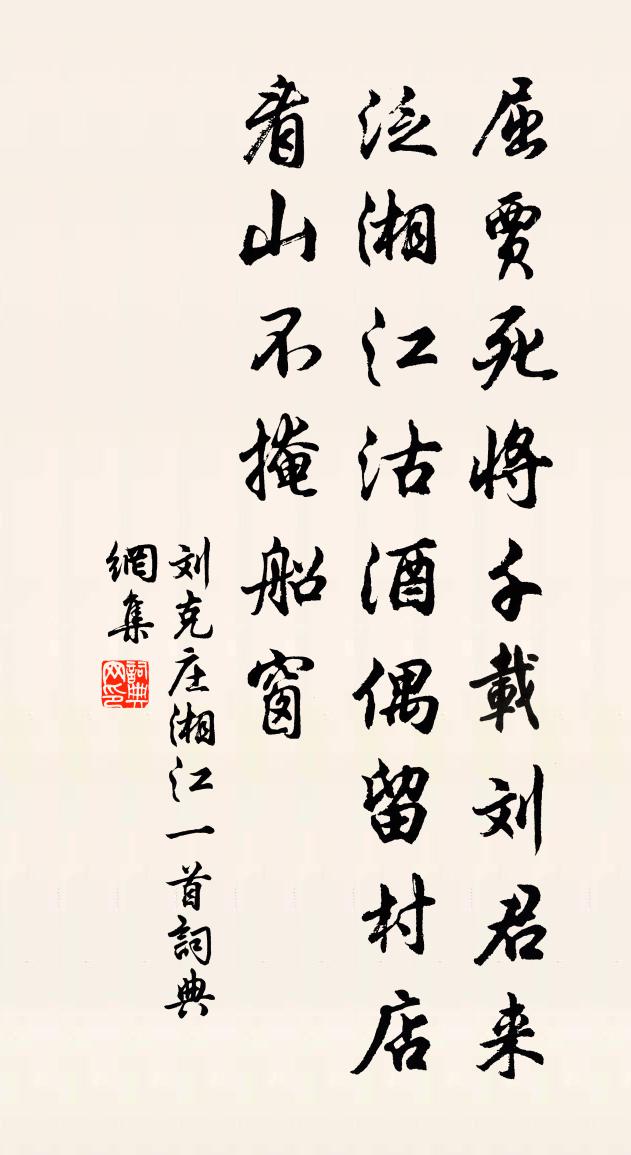 屈賈死將千載刘君来
泛湘江沽酒偶留村店
看山不掩船窗
刘克庄湘江一首詞典
網集
詞典
网印